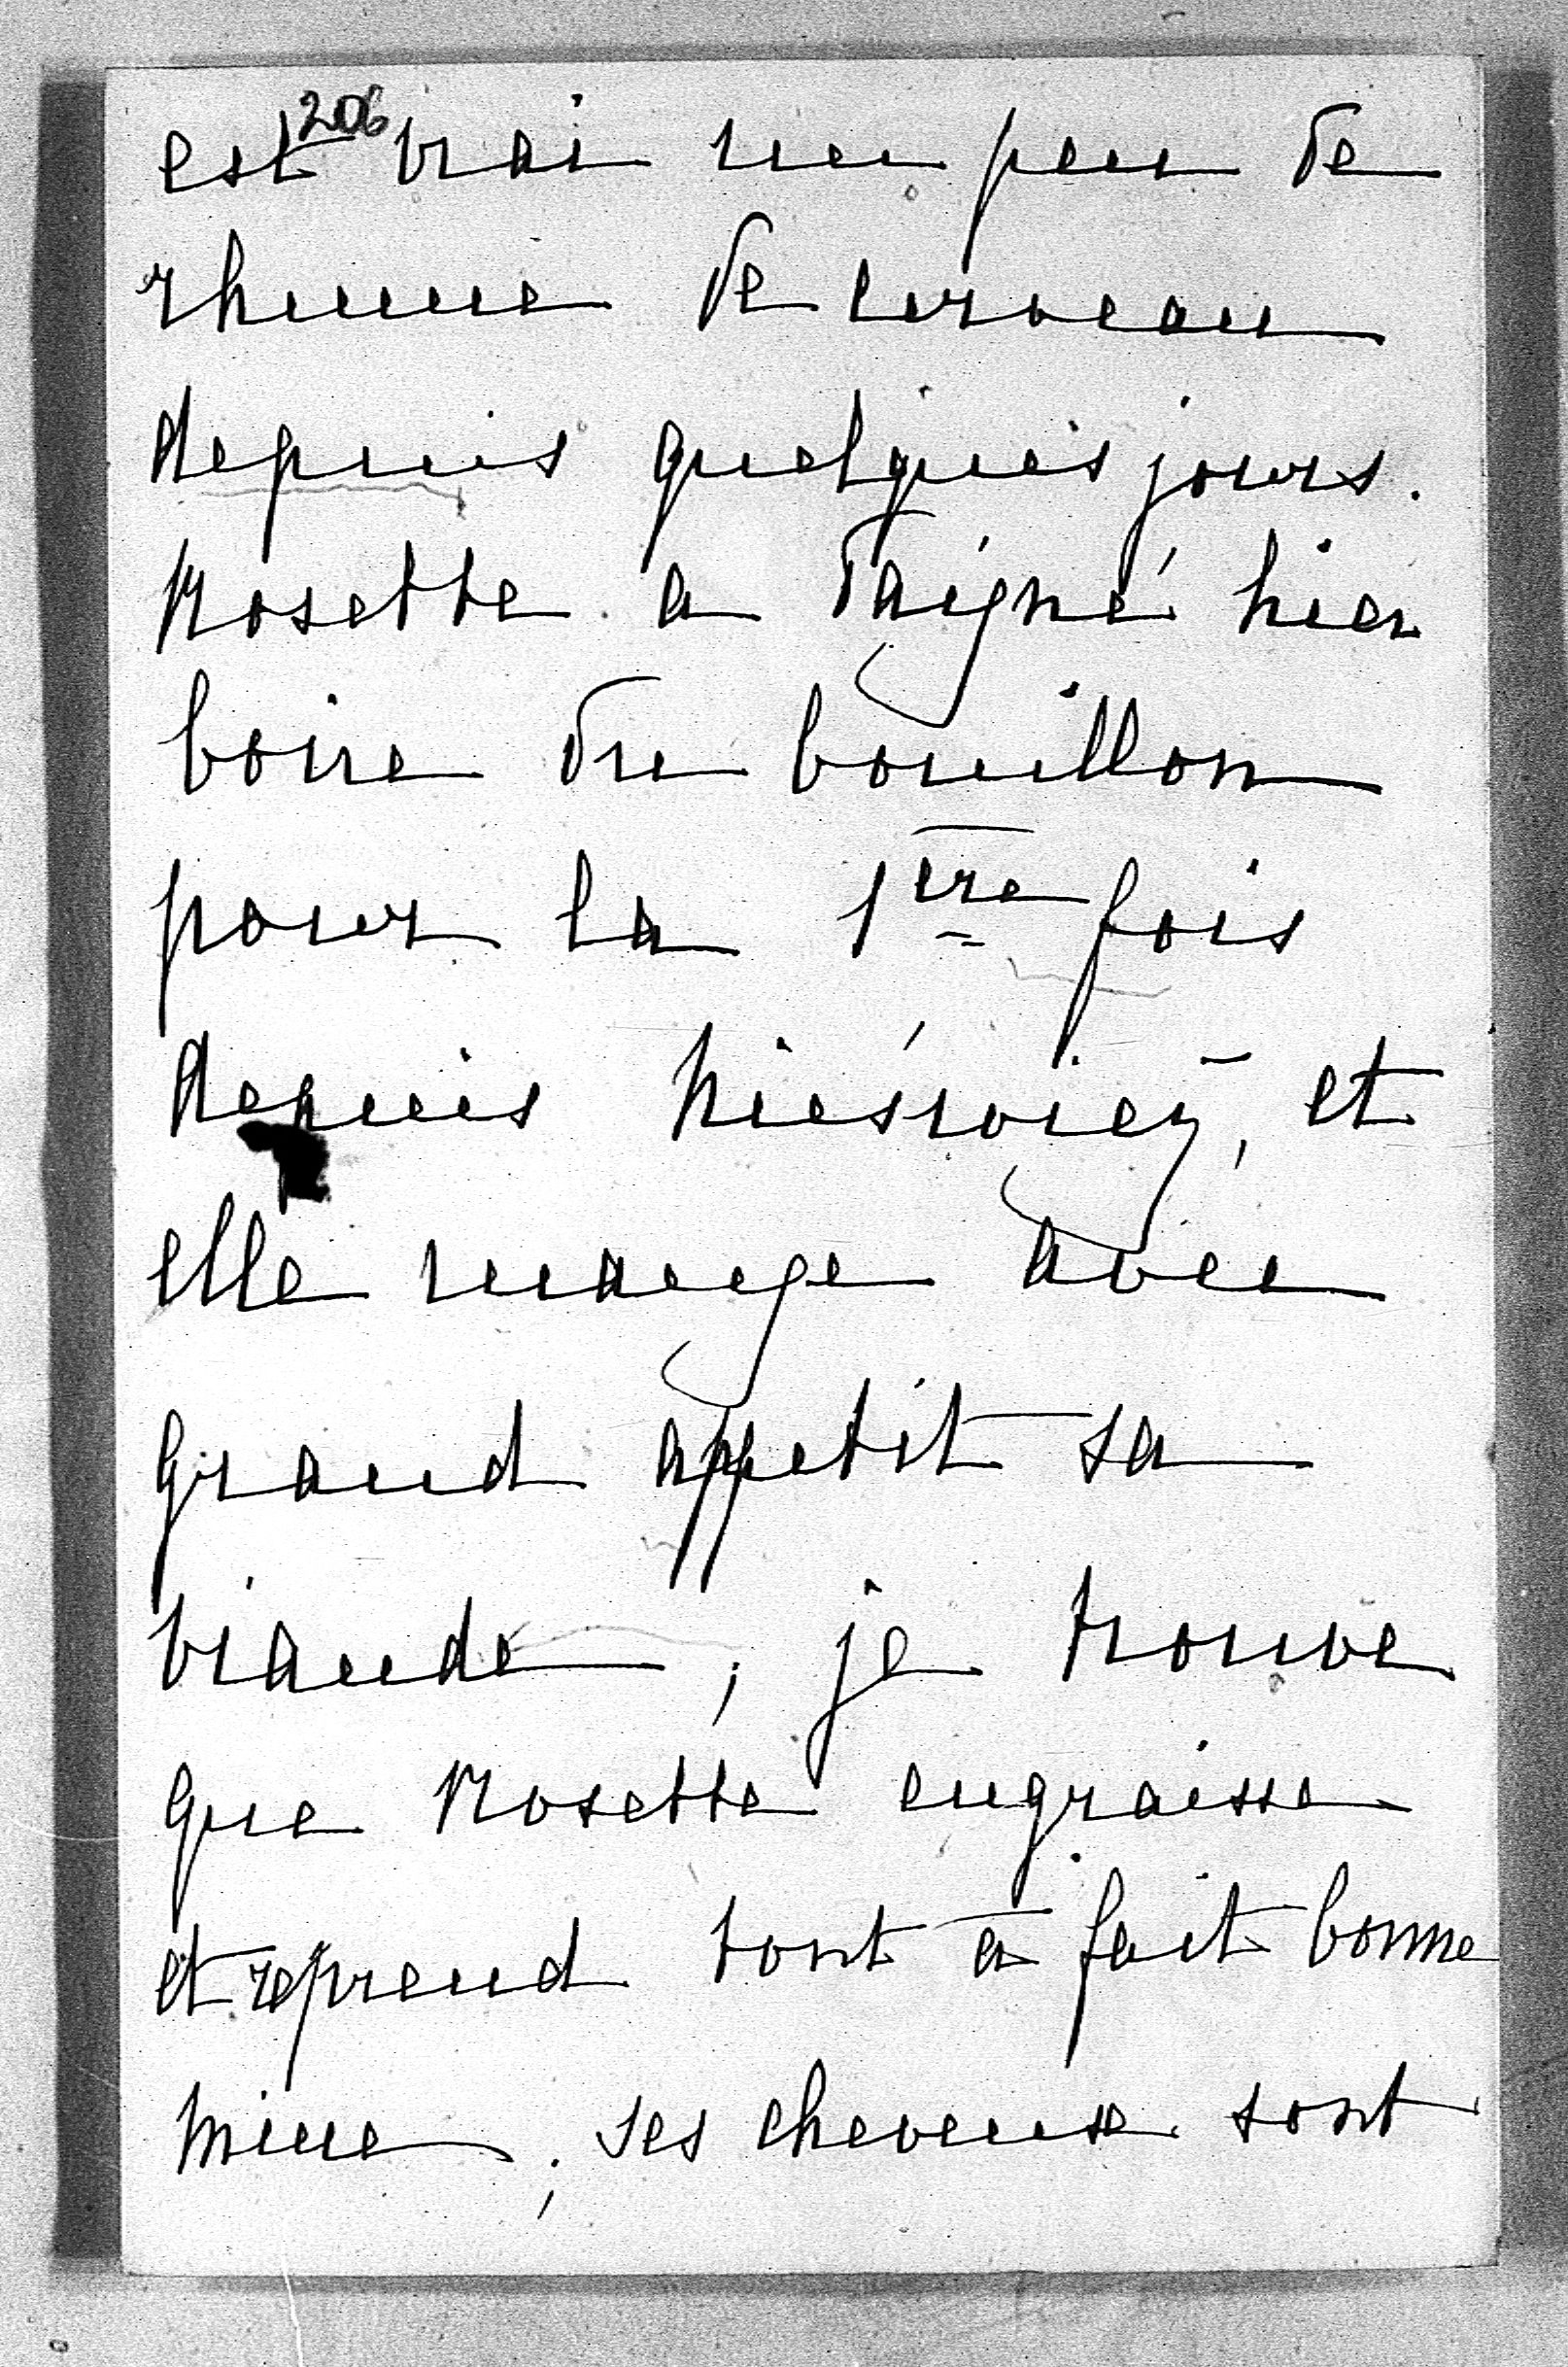 206
est vrai un peu de
rhume de cerveau
depuis quelques jours.
Rosette a daigné hier
boire du bouillon
pour la 1ère fois
depuis et
elle mange avec
grand appetit sa
viande ; je trouve
que Rosette engraisse
et reprend tout à fait bonne
mine ; ses cheveux sont